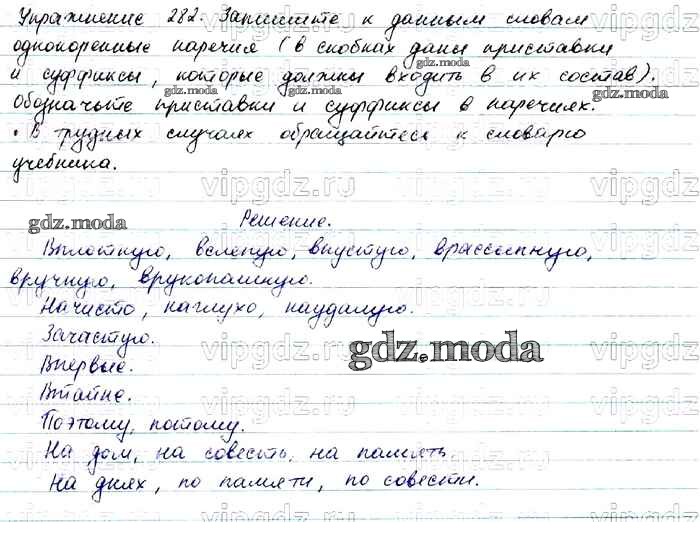 Упражнение 282. Запишите к данным словам
однокоренные наречия (в скобках даны приставки
и суффиксы, которые должны входить в их состав).
Обозначьте приставки и суффиксы в наречиях.
• В трудных случаях обращайтесь к словарю
учебника.
Решение.
Вплотную, вслепую, впустую, врассыпную,
вручную, врукопашную.
Начисто, наглухо, наудалую.
Зачастую.
Впервые.
Втайне.
Поэтому, потому.
На дом, на совесть, на память.
На днях, по памяти, по совести.
gdz.moda
gdz.moda
gdz.moda
gdz.moda
gdz.moda
gdz.moda
vipgdz.ru